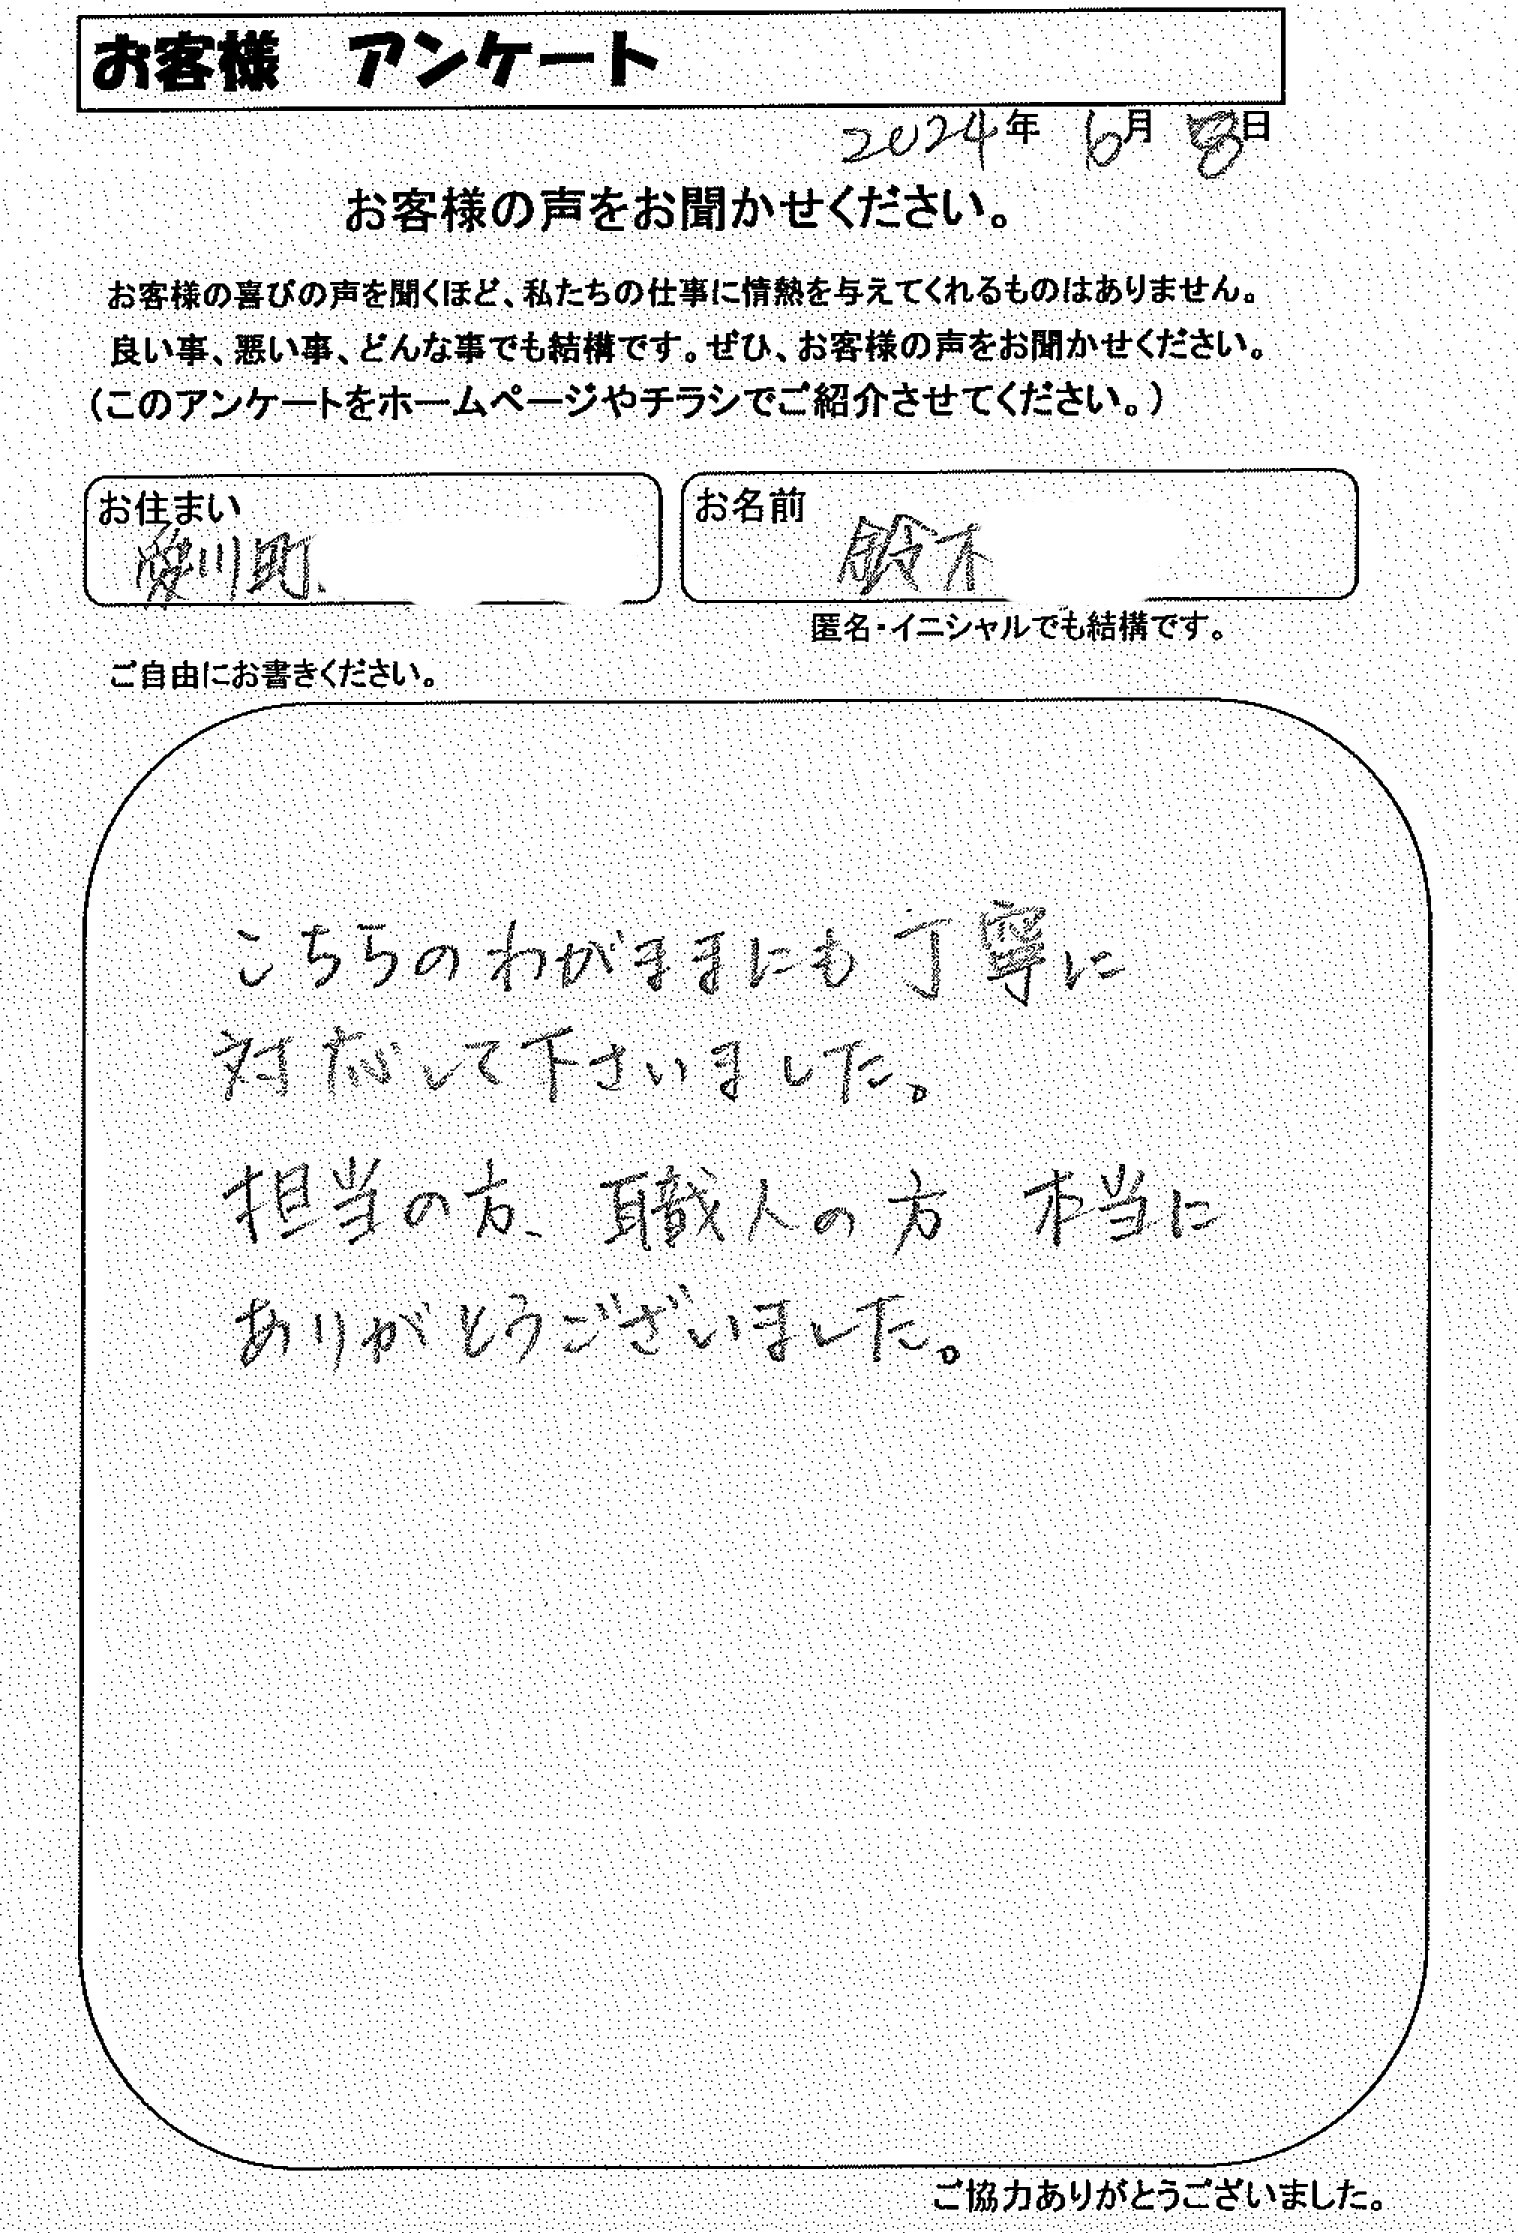 お客様　アンケート
2024年 6月 8日
お客様の声をお聞かせください。
お客様の喜びの声を聞くほど、私たちの仕事に情熱を与えてくれるものはありません。
良い事、悪い事、どんな事でも結構です。ぜひ、お客様の声をお聞かせください。
（このアンケートをホームページやチラシでご紹介させてください。）
お住まい
愛川町
お名前
鈴木
匿名・イニシャルでも結構です。
ご自由にお書きください。
こちらのわがままにも丁寧に
対応して下さいました。
担当の方、職人の方　本当に
ありがとうございました。
ご協力ありがとうございました。